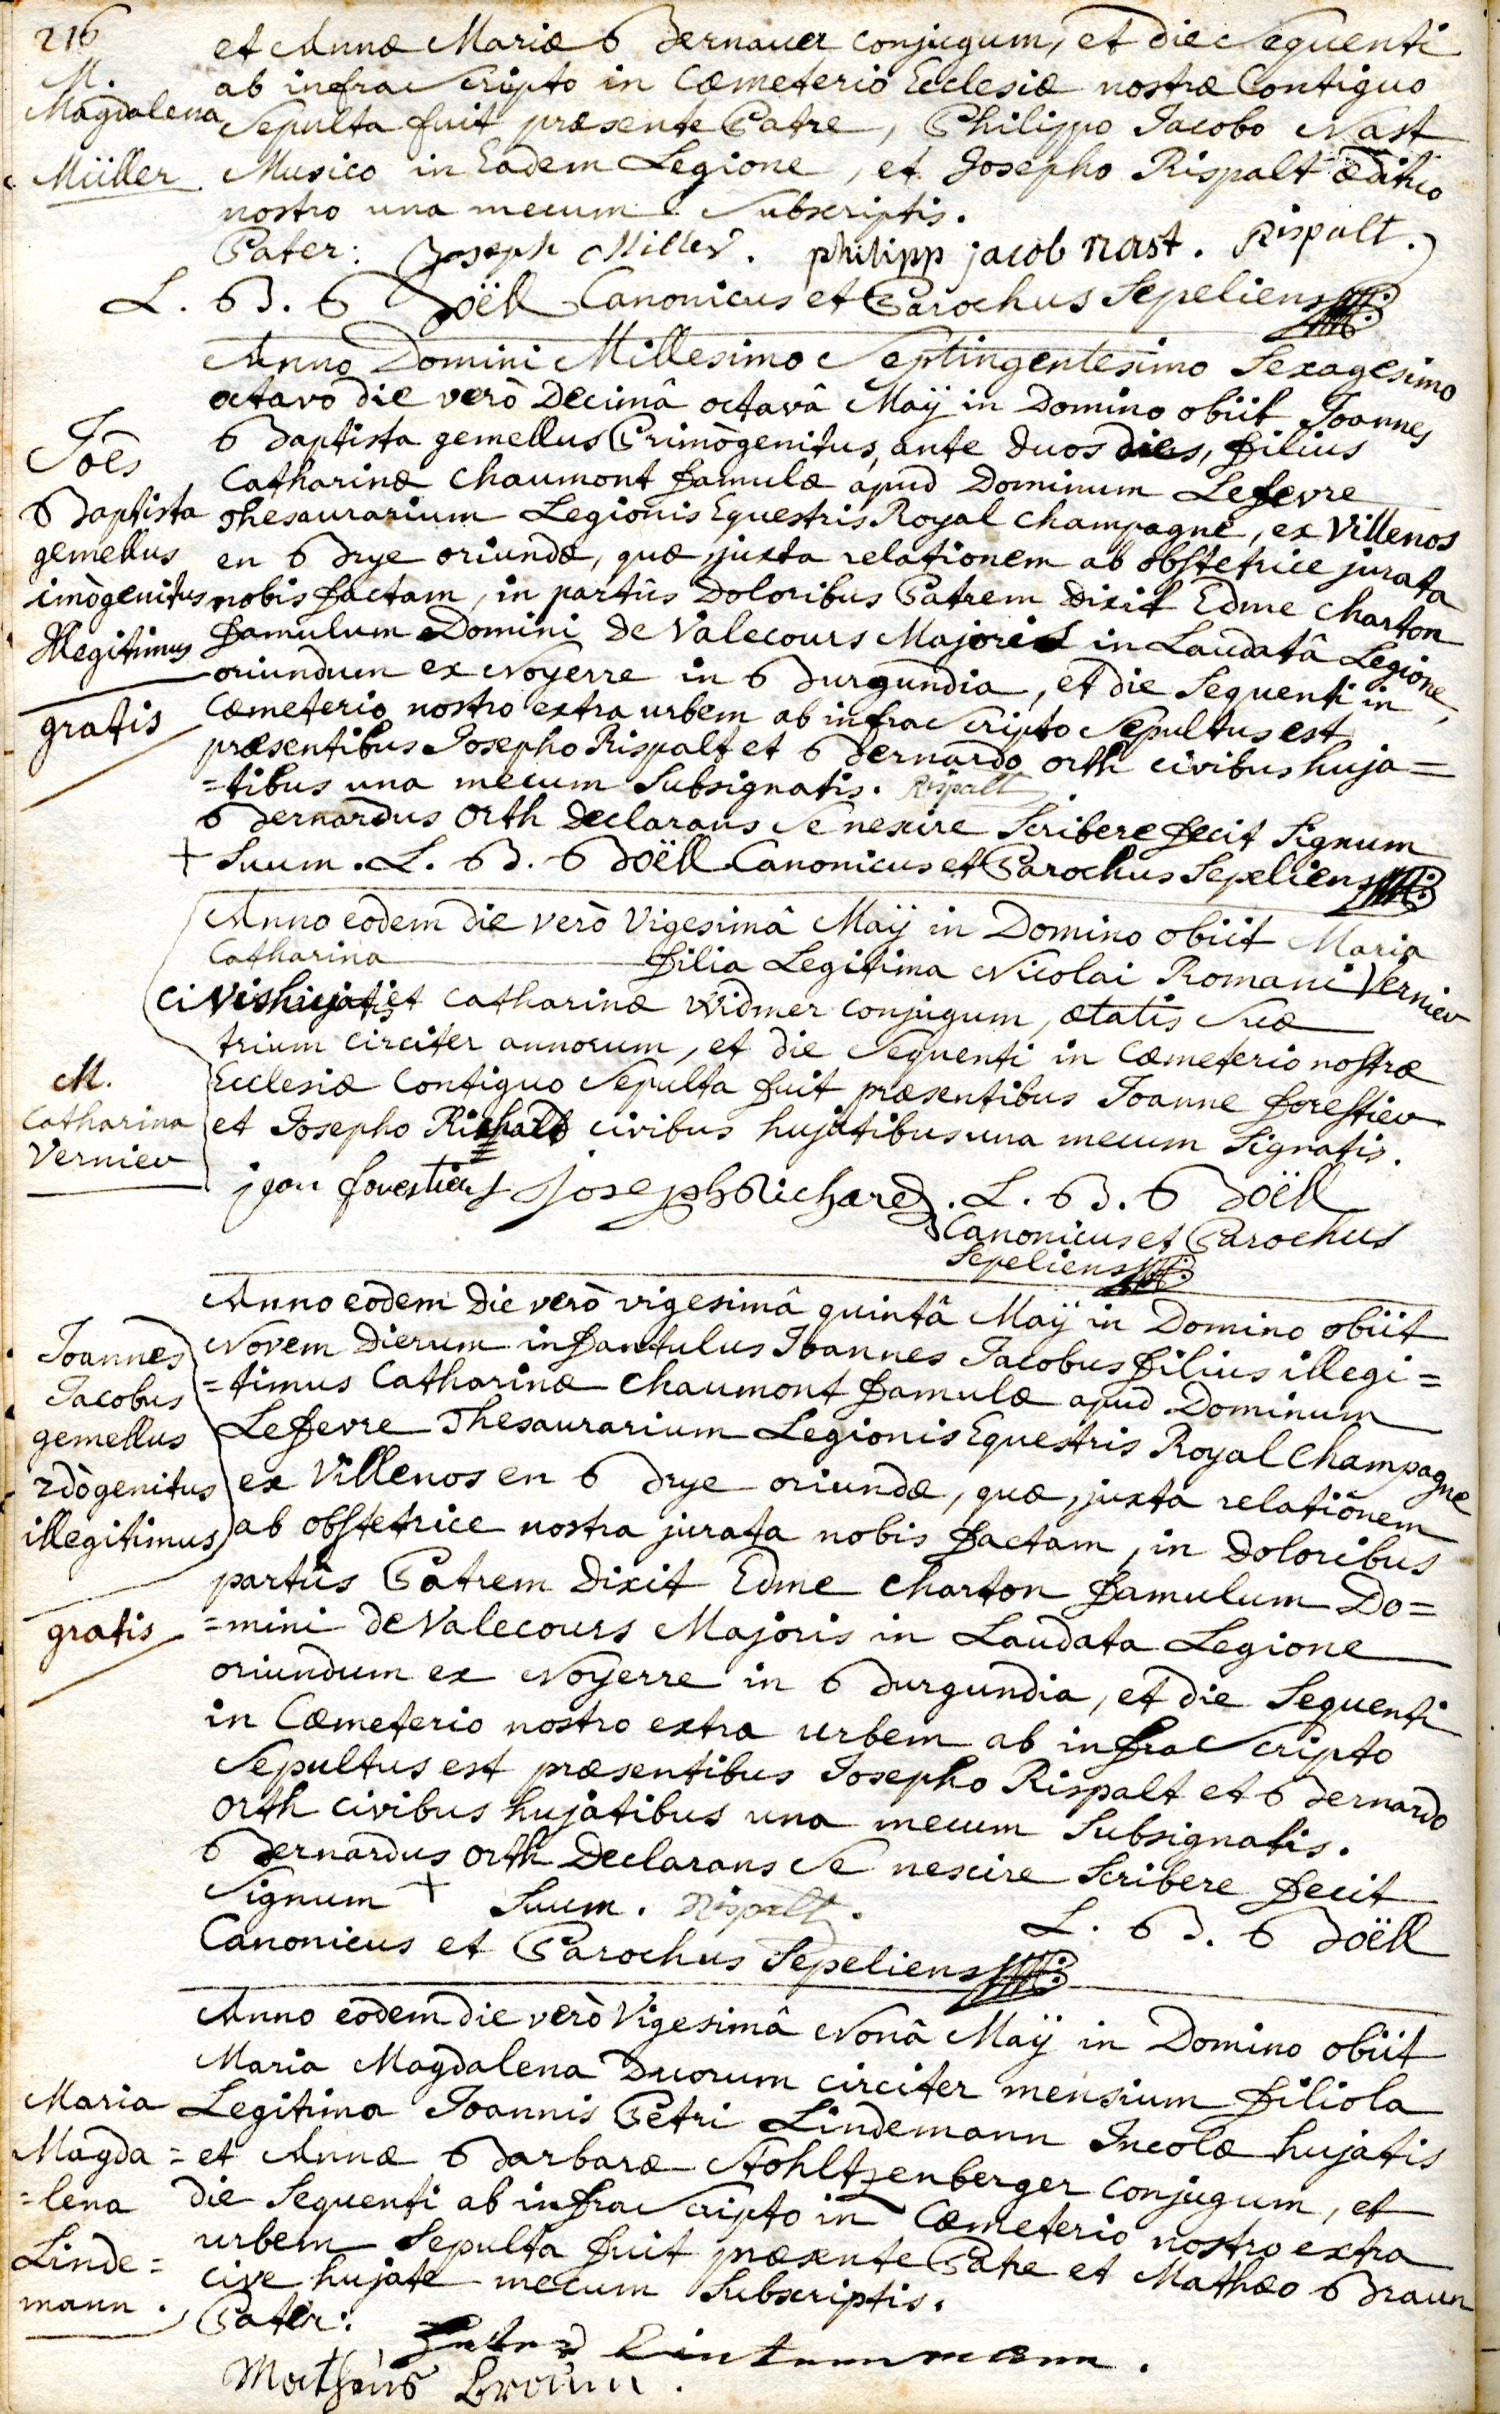 216
M.
Magdalena
Müller
et Annæ Mariæ Bernauer conjugum, et die Sequenti
ab infra Scripto in Cœmeterio Ecclesiæ nostræ Contiguo
Sepulta fuit præsente Patre, Philippo Jacobo Nast
Musico in Eadem Legione, et Josepho Rispalt ædituo
nostro una mecum Subscriptis.
Pater: Joseph Miller. philipp jacob nast. Rispalt.
L. B. Boëll Canonicus et Parochus Sepeliens
Joes
Baptista
gemellus
imògenitus
Illegitimus
gratis
Anno Domini Millesimo Septingentesimo Sexagesimo
octavo die verò Decimâ octavâ Maÿ in Domino obiit Joannes
Baptista gemellus Primògenitus, ante duos dies, filius
Catharinæ Chaumont famulæ apud Dominum Lefevre
thesaurarium Legionis Equestris Royal Champagne, ex Villenos
en Brye oriundæ, quæ, juxta relationem ab obstetrice jurata
nobis factam, in partûs Doloribus Patrem Dixit Edme Charton
famulum Domini de Valecours Majoris in Laudatâ Legione,
oriundum ex Noyerre in Burgundia, et die Sequenti in
Cœmeterio nostro extra urbem ab infra Scripto Sepultus est
præsentibus Josepho Rispalt et Bernardo orth civibus huja=
=tibus una mecum Subsignatis. Rispalt
Bernardus Orth Declarans Se nescire Scribere fecit Signum
+ Suum. L. B. Boëll Canonicus et Parochus Sepeliens
M.
Catharina
Vernier
Anno eodem die verò Vigesimâ Maÿ in Domino obiit Maria
Catharina filia Legitima Nicolai Romani Vernier
civis hujatis et Catharinæ Widmer conjugum, ætatis Suæ
trium circiter annorum, et die Sequenti in Cœmeterio nostræ
Ecclesiæ Contiguo Sepulta fuit præsentibus Joanne forestier
et Josepho Richard civibus hujatibus una mecum Signatis.
jean forestier Joseph Richard. L. B. Boëll
Canonicus et Parochus
Sepeliens
Joannes
Jacobus
gemellus
2dògenitus
illegitimus
gratis
Anno eodem die verò vigesimâ quintâ Maÿ in Domino obiit
Novem Dierum infantulus Joannes Jacobus filius illegi=
=timus Catharinæ Chaumont famulæ apud Dominum
Lefevre Thesaurarium Legionis Equestris Royal Champagne
ex Villenos en Brye oriundæ, quæ, juxta relationem
ab obstetrice nostra jurata nobis factam, in Doloribus
partûs Patrem Dixit Edme Charton famulum Do=
=mini de Valecours Majoris in Laudata Legione
oriundum ex Noyerre in Burgundia, et die Sequenti
in Cœmeterio nostro extra urbem ab infra Scripto
Sepultus est præsentibus Josepho Rispalt et Bernardo
Orth civibus hujatibus una mecum Subsignatis.
Bernardus Orth Declarans Se nescire Scribere fecit
Signum + Suum. Rispalt.
L. B. Boëll
Canonicus et Parochus Sepeliens
Maria
Magda=
=lena
Linde=
mann.
Anno eodem die verò Vigesimâ Nonâ Maÿ in Domino obiit
Maria Magdalena Duorum circiter mensium filiola
Legitima Joannis Petri Lindemann Incolæ hujatis
et Annæ Barbaræ Stohltzenberger conjugum, et
die Sequenti ab infra Scripto in Cœmeterio nostro extra
urbem Sepulta fuit præsente Patre et Mathæo Braun
cive hujate mecum Subscriptis.
Pater: